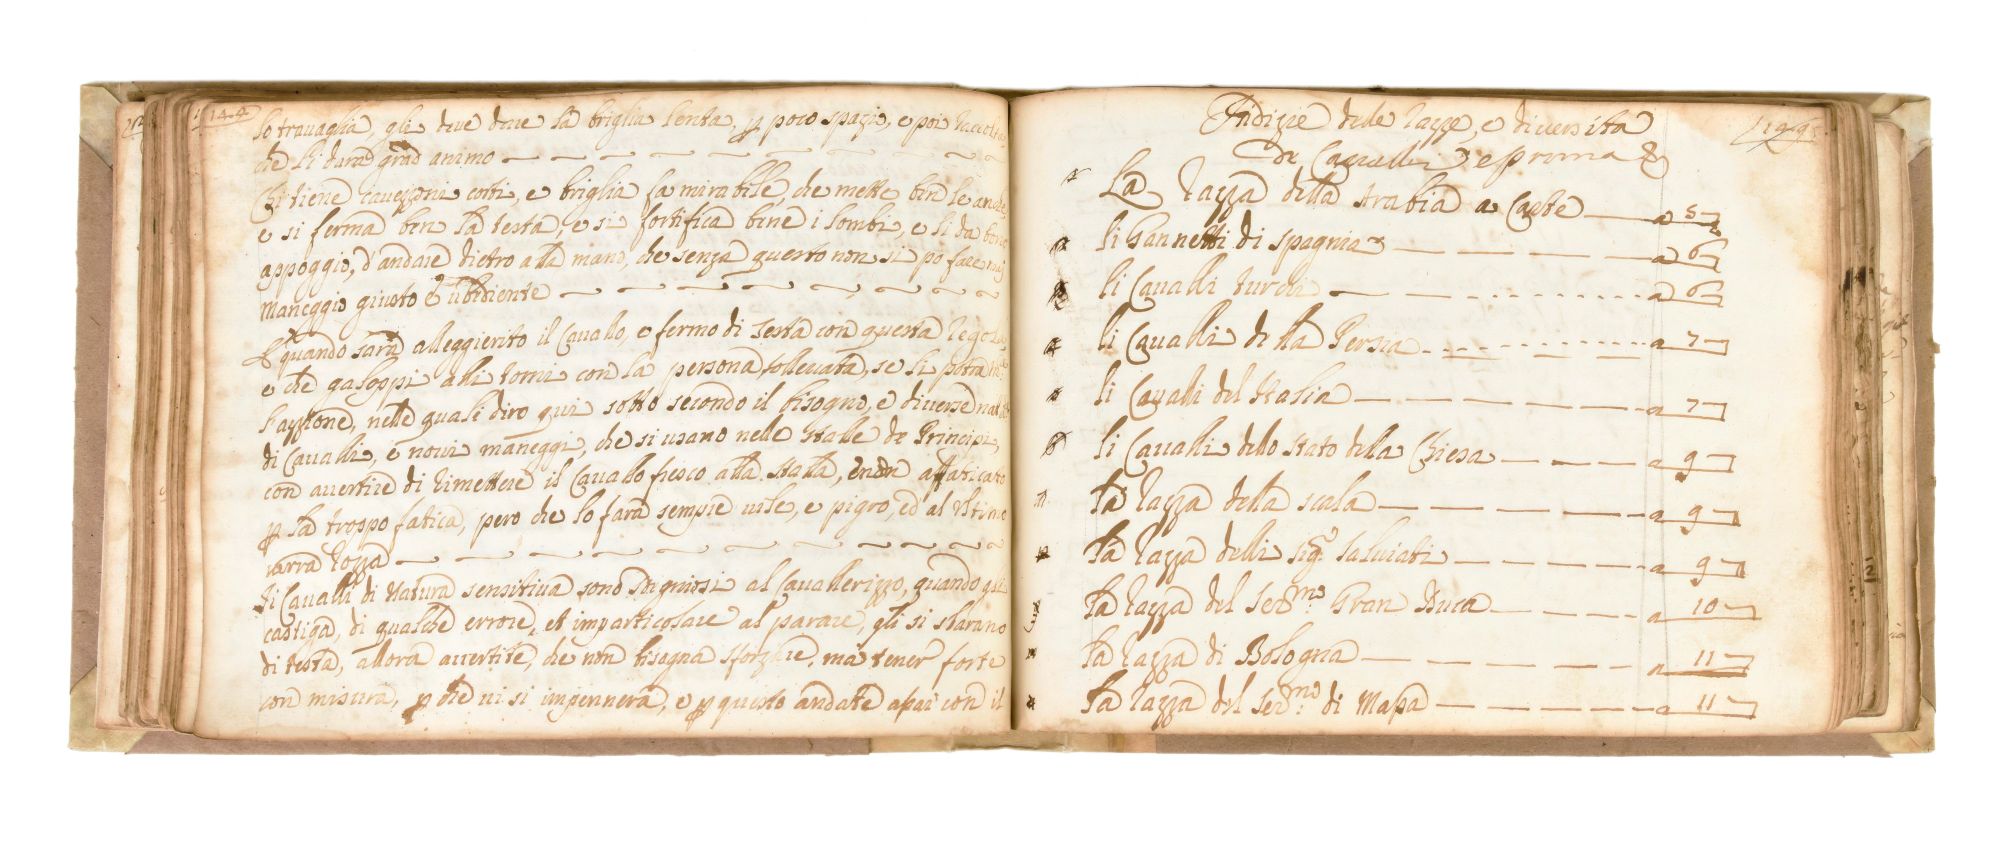 144
lo trauaglia, gli deue dare la briglia lenta, p poco spazio, e poi raccolta
che li darà grad animo
Chi tiene cauezzoni corti, e briglia fa mirabile, che mette ben le anche,
e si ferma ben la testa, e si fortifica bene i lombi, e li da bono
appoggio, d'andare dietro alla mano, che senza questo non si po fare mai
maneggio giusto è ubidiente
E quando sarà alleggierito il Cauallo, e fermo di testa con questa regola
e che galoppi alli torni con la persona solleuata, se li potrà
lazzione, nelle quali diro qui sotto secondo il bisogno, e diuerse
di Caualli, e noui maneggi, che si usano nelle stalle de Principi,
con auertire di rimettere il Cauallo fresco alla stalla, e non affaticato
p la troppo fatica, pero che lo farà sempre uile, e pigro, ed al Ultimo
uarrà rozza
Li Caualli di Natura sensitiua sono sdegniosi al Cauallerizzo, quando gli
castiga, di qualche errore, et imparticolare al parare, gli si sbarano
di testa, allora auertite, che non bisogna sforzare, ma tener forte
con misura, p che ui si impennerà, e p questo andate apari con il
Indizie delle razze, e diuersità
de Caualli e prima
La razza della Arabia a Carte a 5
li Giannetti di Spagnia a 6
li Caualli turchi a 6
li Caualli della Persia a 7
li Caualli del Italia a 7
li Caualli dello stato della Chiesa a 9
la razza della scala a 9
la razza delli Sig.ri Saluiati a 9
la razza del Ser.mo Gran Duca a 10
la razza di Bologna a 11
la razza del Ser.mo di Masa a 11